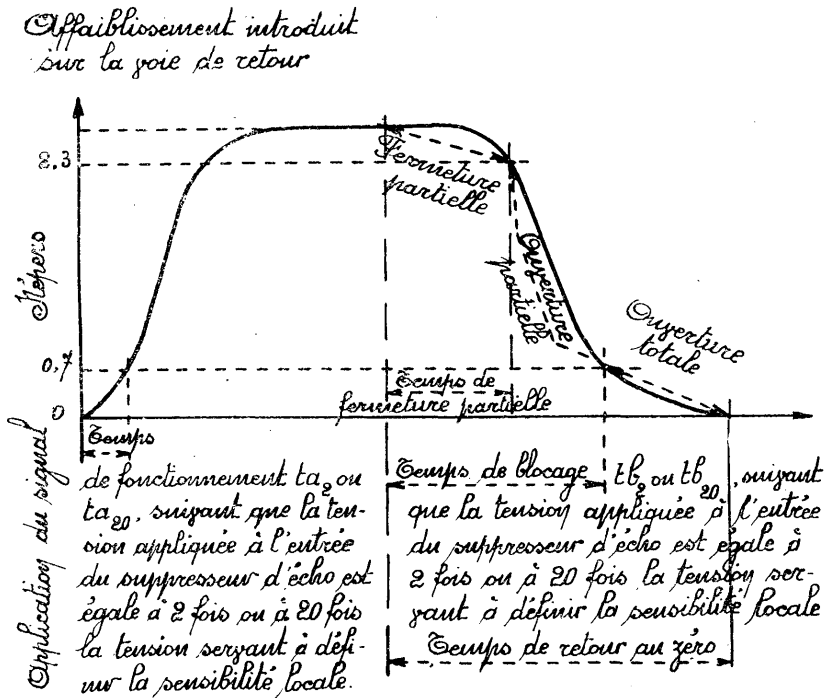 Affaiblissement introduit
sur la voie de retour
2,3
Népers
0,7
0
Fermeture
partielle
Ouverture
partielle
Ouverture
totale
Temps de
fermeture partielle
Application du signal
Temps
de fonctionnement ta2 ou
ta20, suivant que la ten-
sion appliquée à l'entrée
du suppresseur d'écho est
égale à 2 fois ou à 20 fois
la tension servant à défi-
nir la sensibilité locale.
Temps de blocage tb2 ou tb20, suivant
que la tension appliquée à l'entrée
du suppresseur d'écho est égale à
2 fois ou à 20 fois la tension ser-
vant à définir la sensibilité locale
Temps de retour au zéro